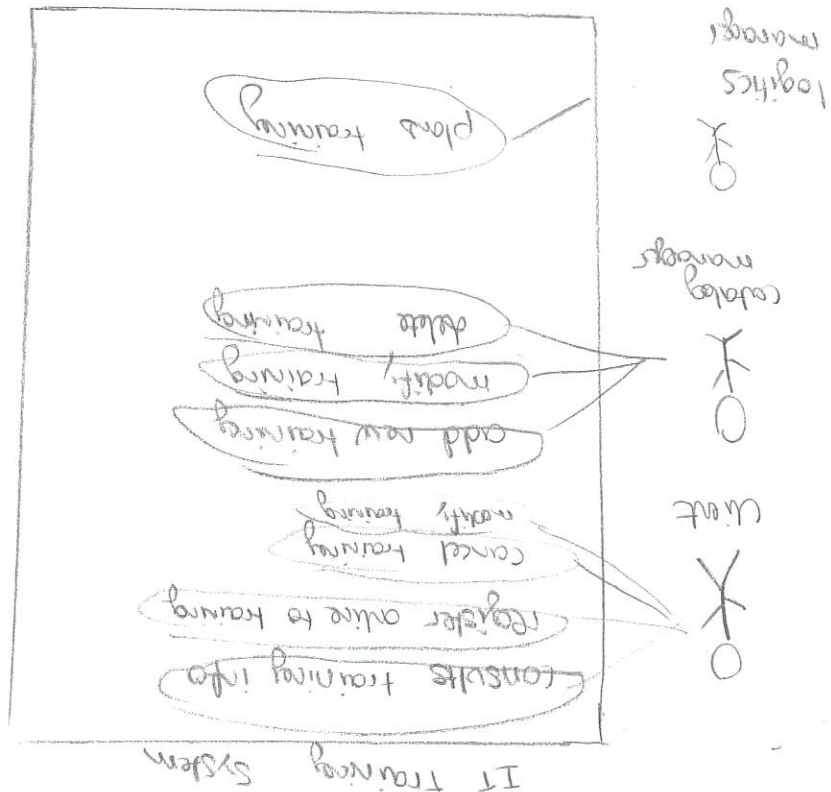 IT Training System
consults training info
register online to training
cancel training
modify training
client
add new training
modify training
delete training
catalog
manager
plans training
logitics
manager